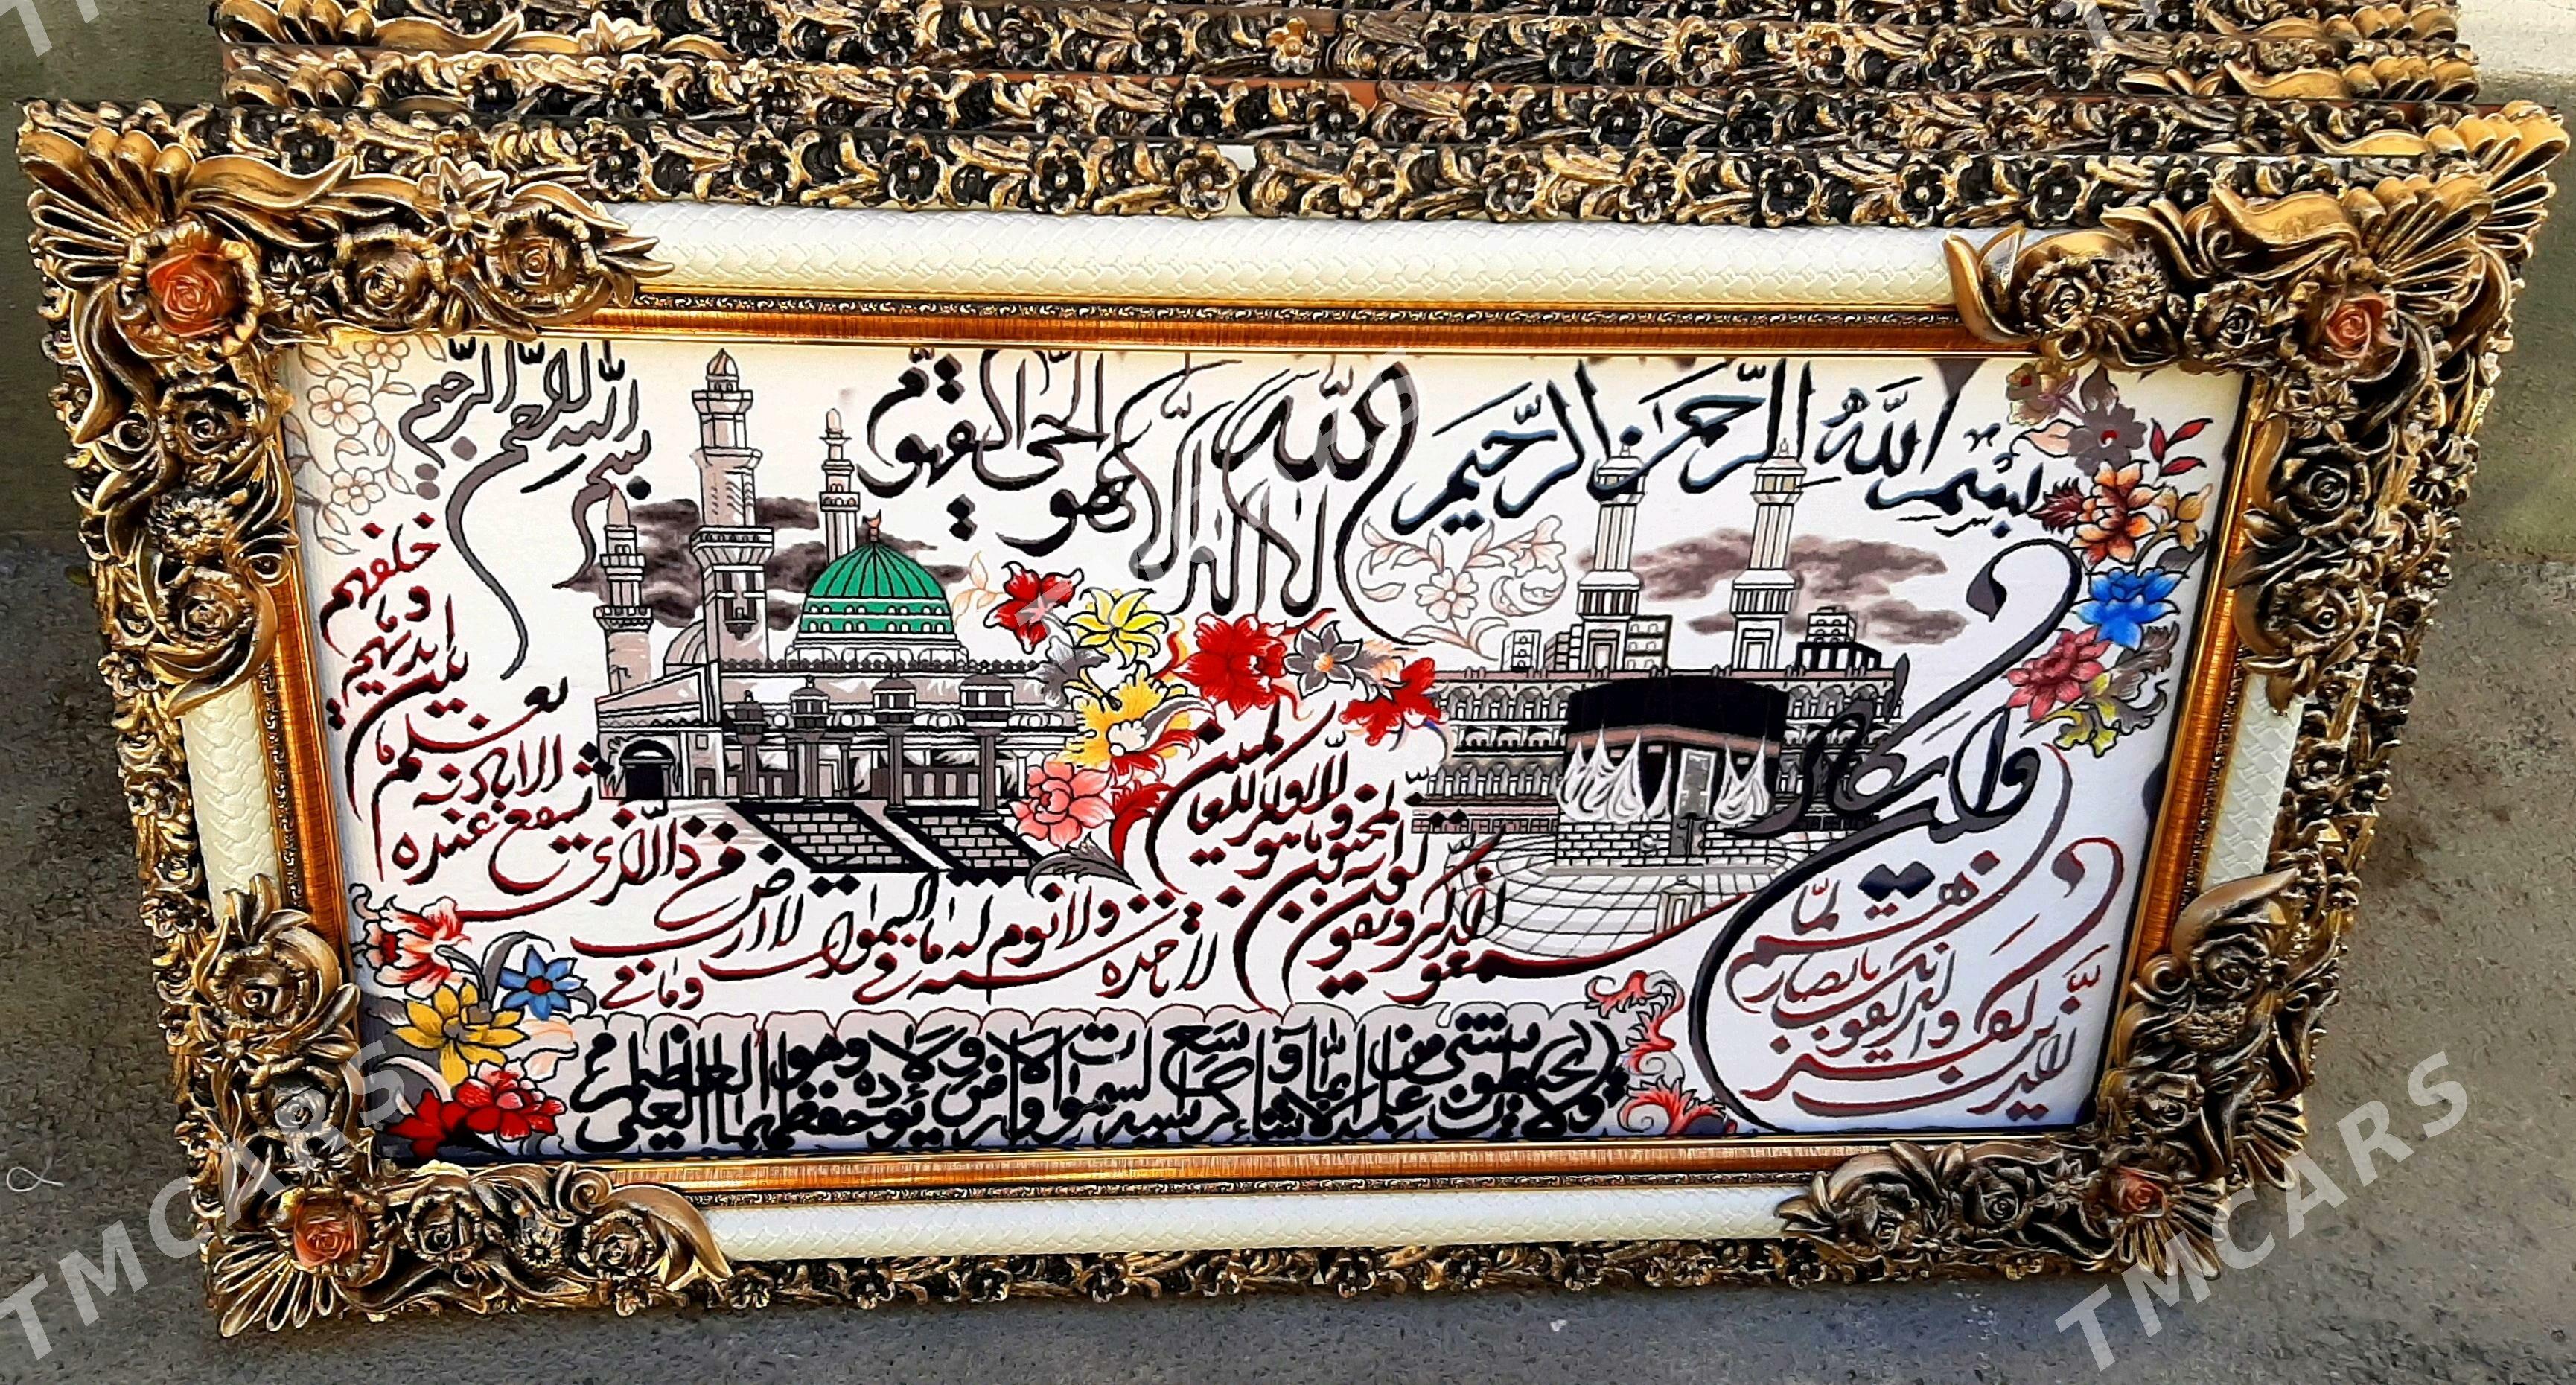 بسم الله الرحمن الرحيم
وان يكاد
الذين كفروا
ليزلقونك بابصارهم لما
سمعوا الذكر ويقولون
انه لمجنون وما هو
الا ذكر للعالمين
بسم الله الرحمن الرحيم
الله لا اله الا هو الحي القيوم
لا تاخذه سنة ولا نوم له ما في السموات
وما في الارض من ذا الذي
يشفع عنده
الا باذنه
يعلم ما
بين ايديهم
وما خلفهم
ولا يحيطون بشيء من علمه الا بما شاء وسع كرسيه السموات والارض ولا يؤده حفظهما وهو العلي العظيم
TMCARS
TMCARS
TMCARS